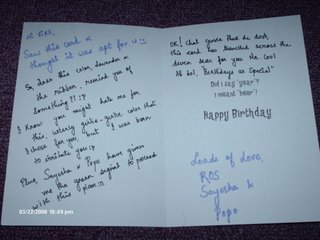 Hi Viks,
Saw this card &
thought it was apt for u :)
So, does this color, lavender &
the ribbon, remind you of
something?! :p
I know you might hate me for
this, utterly girlie-girlie color that
I chose for you, but I was born
to irritate you :p
Plus, Sayesha & Popo have given
me the green signal to proceed
with this plan :D
OK! that quote that de best,
this card has travelled across the
seven seas for you Mr. Cool!
lol, "Birthdays are Special"
Did I say "year"?
I meant "beer"!
Happy Birthday
Loads of Love,
ROS
Sayesha &
Popo
03/22/2006 10:49 pm